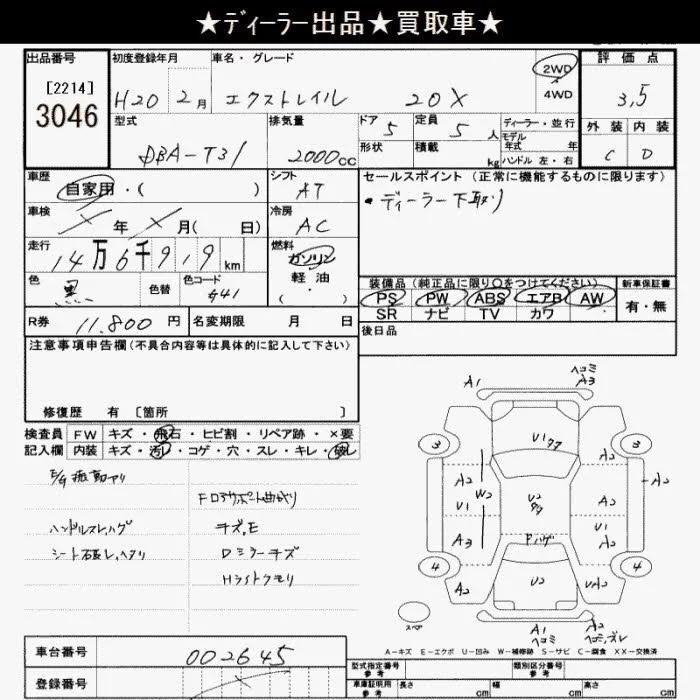 ★ディーラー出品★買取車★
出品番号
[2214]
3046
初度登録年月
H20 2月
車名・グレード
エクストレイル 20X
2WD
4WD
評価点
3,5
外装 内装
C D
型式
DBA-T31
排気量
2000cc
ドア 5
定員 5人
ディーラー・並行
モデル年式 年
形状
積載 kg
ハンドル 左・右
車歴
自家用・( )
シフト
AT
セールスポイント(正常に機能するものに限ります)
・ディーラー下取り
車検
× 年 × 月( 日)
冷房
AC
走行
14万6千919km
燃料
ガソリン
軽油
( ・ )
色
黒
色替
色コード
G41
装備品(純正品に限り〇をつけてください)
PS PW ABS エアB AW
SR ナビ TV カワ
新車保証書
有・無
R券 11,800円
名変期限 月 日
後日品
注意事項申告欄(不具合内容等は具体的に記入して下さい)
修復歴 有 [箇所 ]
検査員 FW キズ・飛石・ヒビ割・リペア跡・×要
記入欄 内装 キズ・汚レ・コゲ・穴・スレ・キレ・破レ
E/g振動アリ
ハンドルスレ,ハゲ
シート破レ,ヘタリ
Fロアサポート曲がり
キズ,E
Dミラーキズ
Hライトクモリ
A1
ヘコミ
A3
3
3
U1
A2
A2
A2
W2
U2
A2
U1
U1
A3
Fハゲ
A2
4
4
A2
U2
UA2
スペア
A1
ヘコミ,ズレ
A-キズ E-エクボ U-凹み W-補修跡 S-サビ C-腐食 XX-交換済
車台番号
002645
登録番号
型式指定番号
参考
類別区分番号
参考
車庫証明用
参考
長さ cm
幅 cm
高さ cm